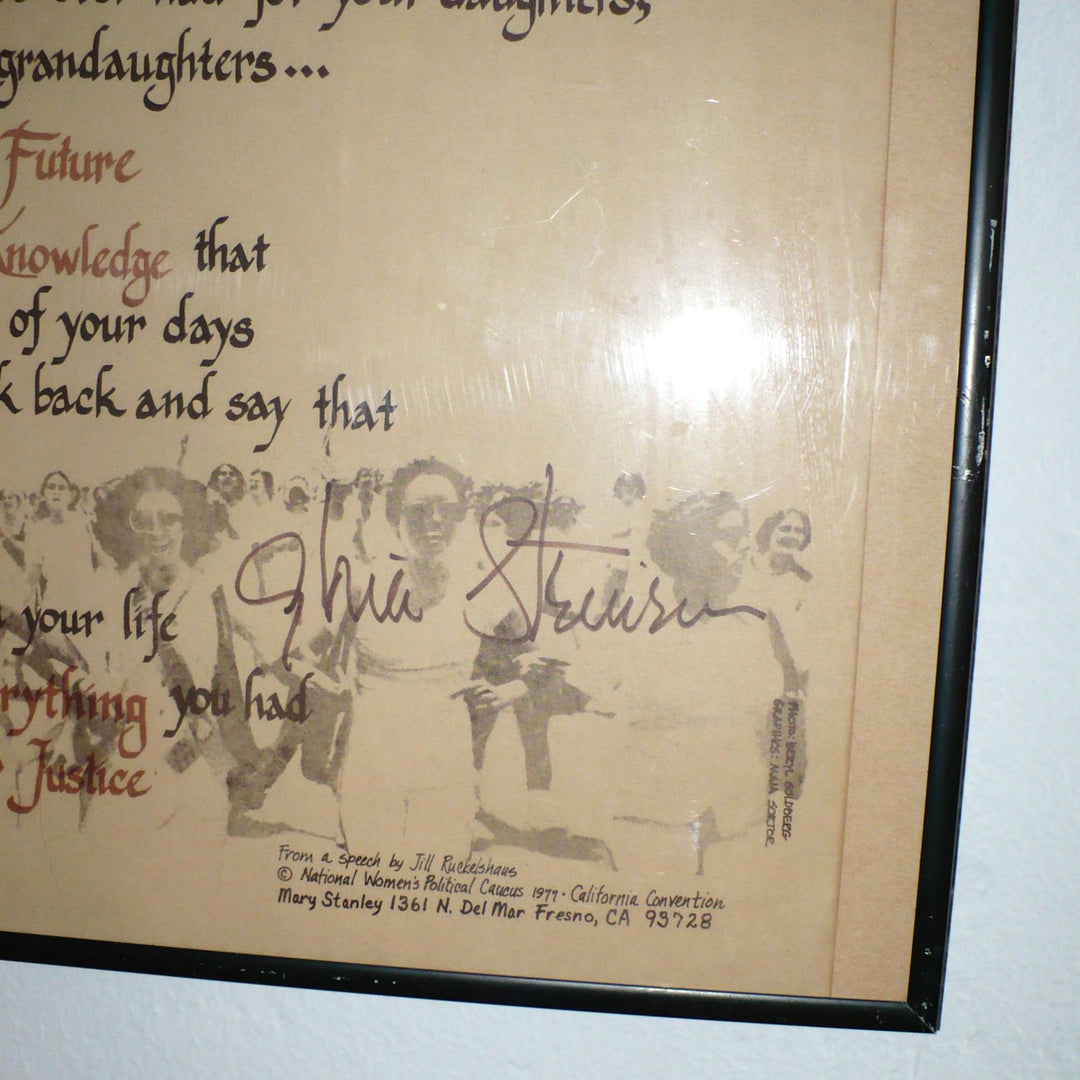 ever had for your daughters,
grandaughters...
Future
Knowledge that
of your days
k back and say that
Gloria Steinem
your life
rything you had
Justice
PHOTO: BERYL GOLDBERG
GRAPHICS: MAIA SORTOR
From a speech by Jill Ruckelshaus
© National Women's Political Caucus 1977 · California Convention
Mary Stanley 1361 N. Del Mar Fresno, CA 93728